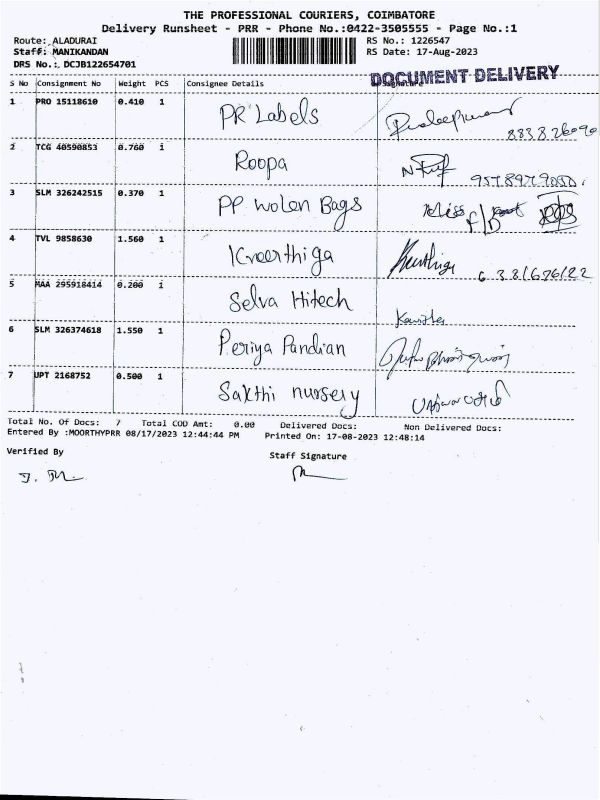 THE PROFESSIONAL COURIERS, COIMBATORE
Delivery Runsheet - PRR - Phone No.:0422-3505555 - Page No.:1
Route: ALADURAI RS No.: 1226547
Staff: MANIKANDAN RS Date: 17-Aug-2023
DRS No.: DCJB122654701 DOCUMENT DELIVERY
S No Consignment No Weight PCS Consignee Details Signature
1 PRO 15118610 0.410 1 PR Labels
2 TCG 40590853 0.760 1 Roopa
3 SLM 326242515 0.370 1 PP wolen Bags
4 TVL 9858630 1.560 1 Kreerthiga
5 MAA 295918414 0.200 1 Selva Hitech
6 SLM 326374618 1.550 1 Periya Pandian
7 UPT 2168752 0.500 1 Sakthi nursery
Total No. Of Docs: 7 Total COD Amt: 0.00 Delivered Docs: Non Delivered Docs:
Entered By :MOORTHYPRR 08/17/2023 12:44:44 PM Printed On: 17-08-2023 12:48:14
Verified By Staff Signature